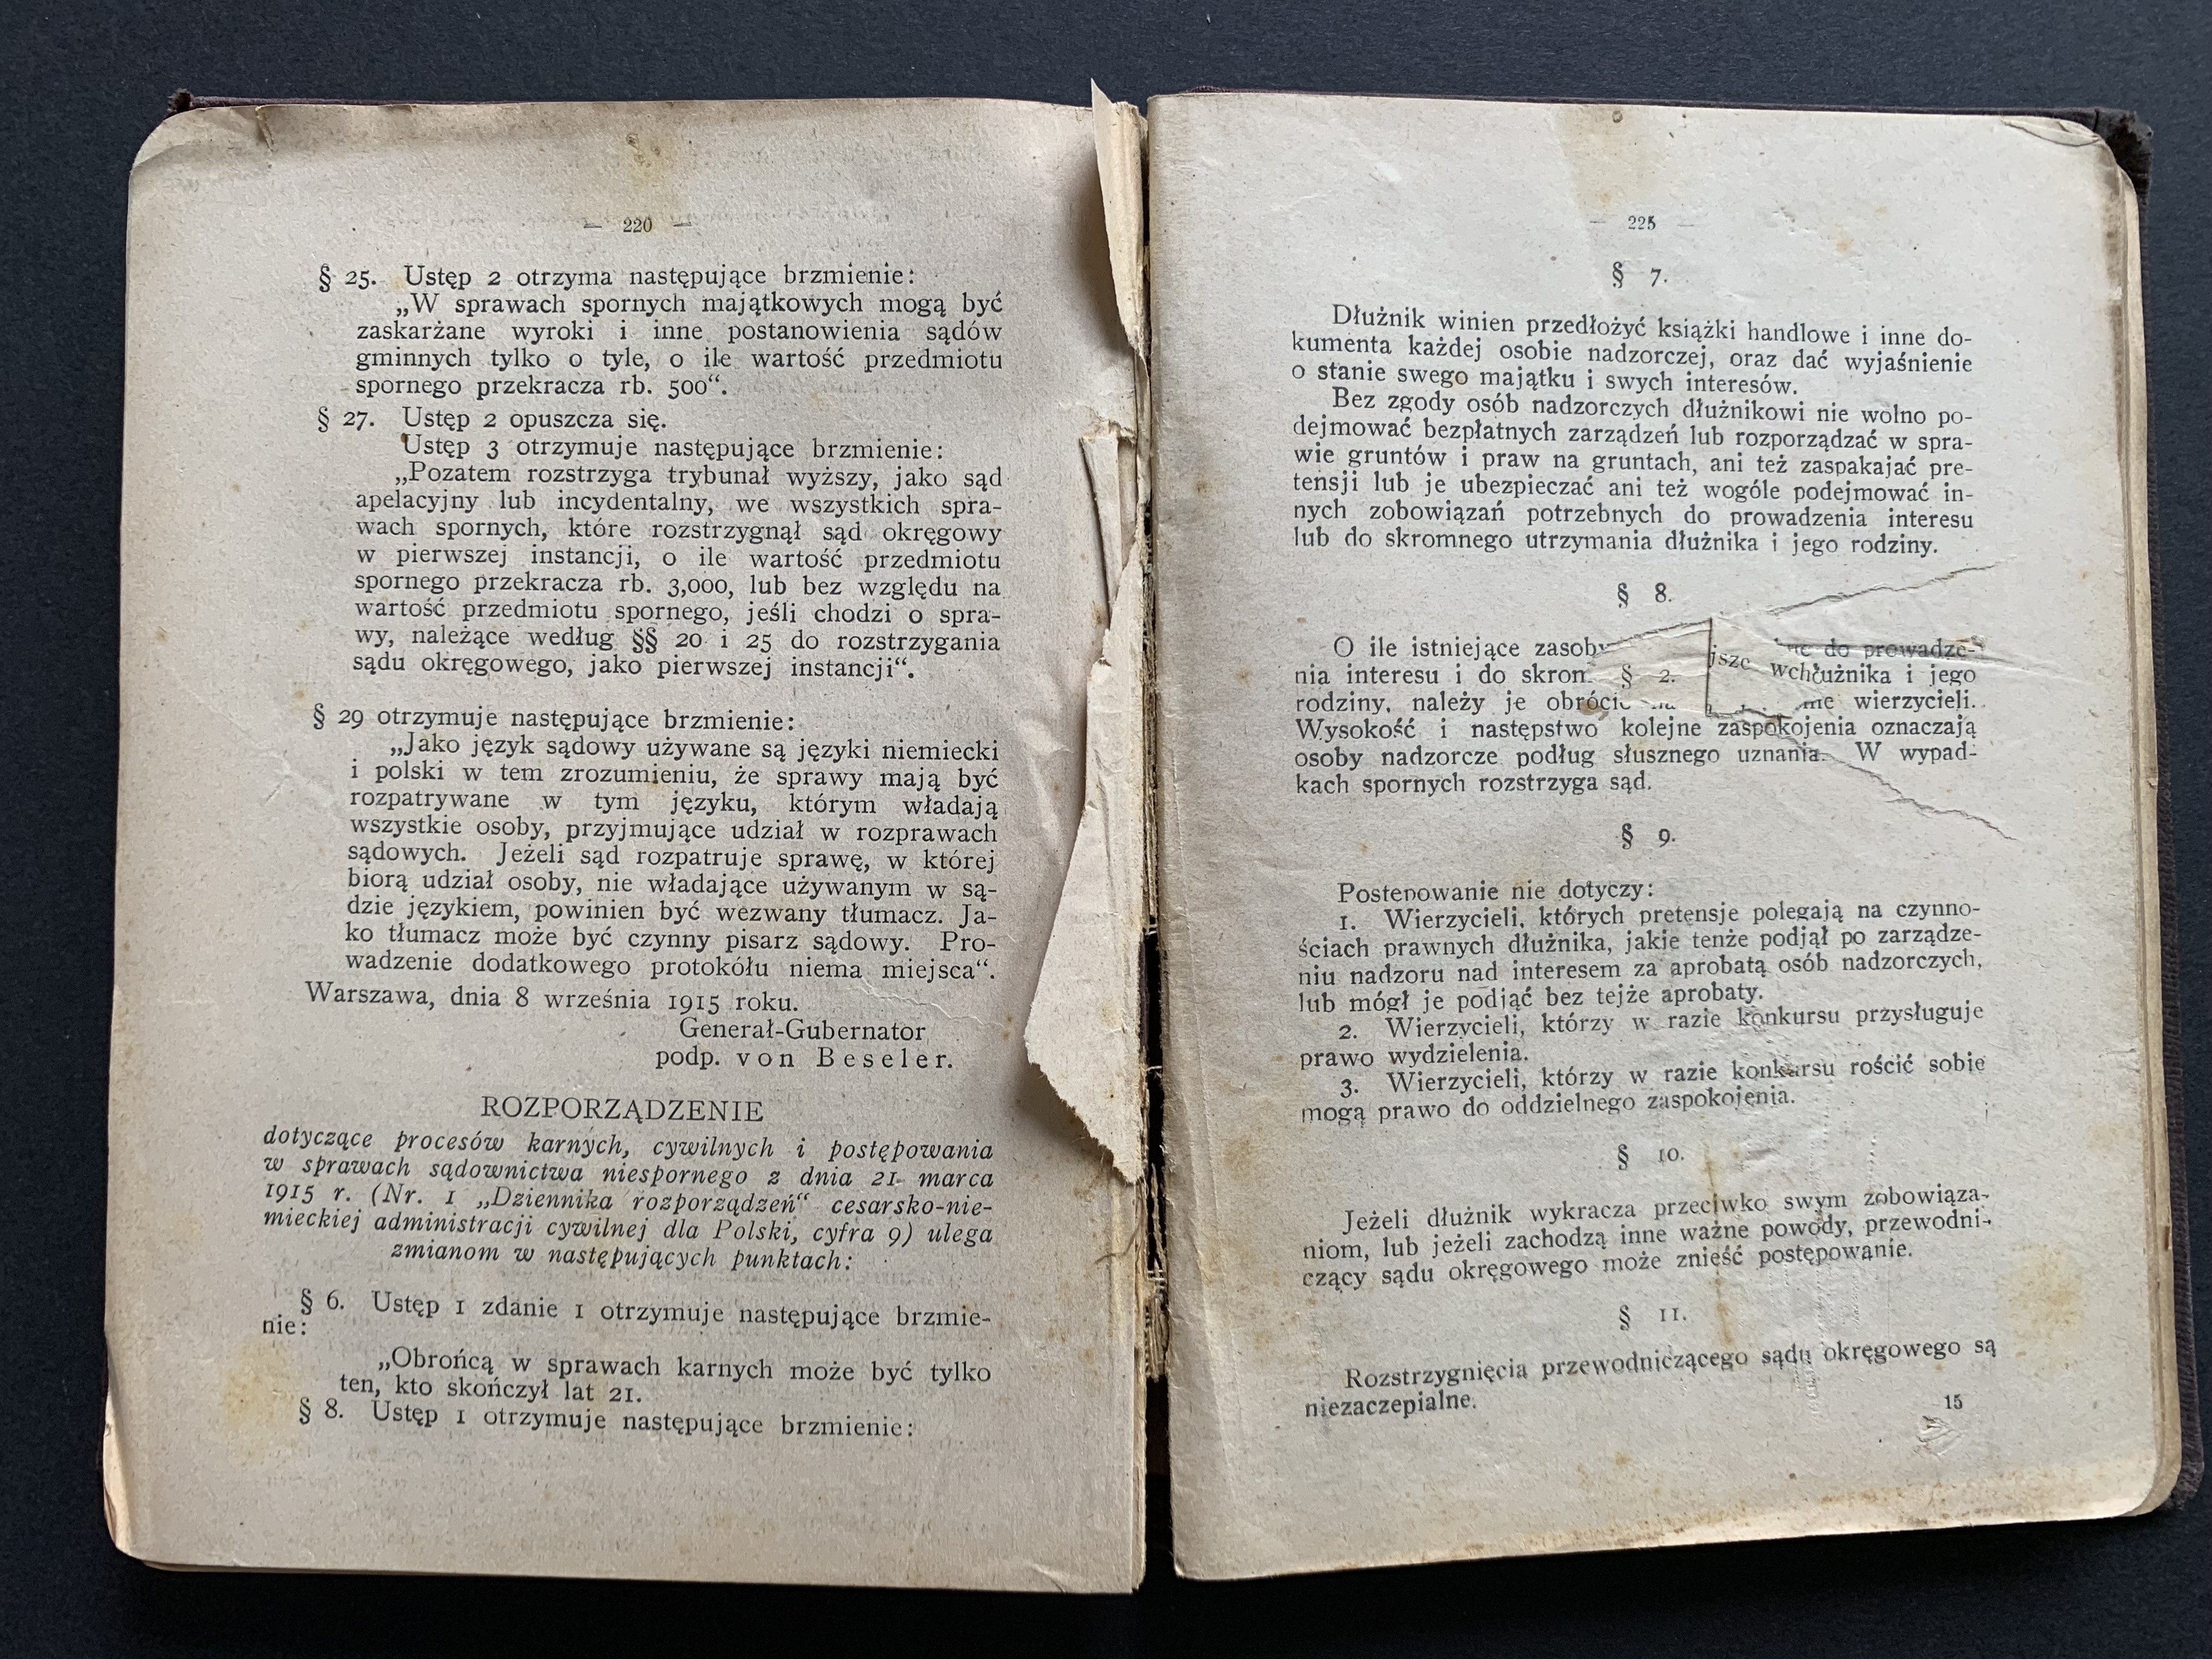 — 220 —
§ 25. Ustęp 2 otrzyma następujące brzmienie:
„W sprawach spornych majątkowych mogą być
zaskarżane wyroki i inne postanowienia sądów
gminnych tylko o tyle, o ile wartość przedmiotu
spornego przekracza rb. 500“.
§ 27. Ustęp 2 opuszcza się.
Ustęp 3 otrzymuje następujące brzmienie:
„Pozatem rozstrzyga trybunał wyższy, jako sąd
apelacyjny lub incydentalny, we wszystkich spra-
wach spornych, które rozstrzygnął sąd okręgowy
w pierwszej instancji, o ile wartość przedmiotu
spornego przekracza rb. 3,000, lub bez względu na
wartość przedmiotu spornego, jeśli chodzi o spra-
wy, należące według §§ 20 i 25 do rozstrzygania
sądu okręgowego, jako pierwszej instancji“.
§ 29 otrzymuje następujące brzmienie:
„Jako język sądowy używane są języki niemiecki
i polski w tem zrozumieniu, że sprawy mają być
rozpatrywane w tym języku, którym władają
wszystkie osoby, przyjmujące udział w rozprawach
sądowych. Jeżeli sąd rozpatruje sprawę, w której
biorą udział osoby, nie władające używanym w są-
dzie językiem, powinien być wezwany tłumacz. Ja-
ko tłumacz może być czynny pisarz sądowy. Pro-
wadzenie dodatkowego protokółu niema miejsca“.
Warszawa, dnia 8 września 1915 roku.
Generał-Gubernator
podp. von Beseler.
ROZPORZĄDZENIE
dotyczące procesów karnych, cywilnych i postępowania
w sprawach sądownictwa niespornego z dnia 21 marca
1915 r. (Nr. 1 „Dziennika rozporządzeń“ cesarsko-nie-
mieckiej administracji cywilnej dla Polski, cyfra 9) ulega
zmianom w następujących punktach:
§ 6. Ustęp 1 zdanie 1 otrzymuje następujące brzmie-
nie:
„Obrońcą w sprawach karnych może być tylko
ten, kto skończył lat 21.
§ 8. Ustęp 1 otrzymuje następujące brzmienie:
— 225 —
§ 7.
Dłużnik winien przedłożyć książki handlowe i inne do-
kumenta każdej osobie nadzorczej, oraz dać wyjaśnienie
o stanie swego majątku i swych interesów.
Bez zgody osób nadzorczych dłużnikowi nie wolno po-
dejmować bezpłatnych zarządzeń lub rozporządzać w spra-
wie gruntów i praw na gruntach, ani też zaspakajać pre-
tensji lub je ubezpieczać ani też wogóle podejmować in-
nych zobowiązań potrzebnych do prowadzenia interesu
lub do skromnego utrzymania dłużnika i jego rodziny.
§ 8.
O ile istniejące zasoby do prowadze-
nia interesu i do skrom § 2. jsze wch dłużnika i jego
rodziny, należy je obrócić na wierzycieli.
Wysokość i następstwo kolejne zaspokojenia oznaczają
osoby nadzorcze podług słusznego uznania. W wypad-
kach spornych rozstrzyga sąd.
§ 9.
Postępowanie nie dotyczy:
1. Wierzycieli, których pretensje polegają na czynno-
ściach prawnych dłużnika, jakie tenże podjął po zarządze-
niu nadzoru nad interesem za aprobatą osób nadzorczych,
lub mógł je podjąć bez tejże aprobaty.
2. Wierzycieli, którzy w razie konkursu przysługuje
prawo wydzielenia.
3. Wierzycieli, którzy w razie konkursu rościć sobie
mogą prawo do oddzielnego zaspokojenia.
§ 10.
Jeżeli dłużnik wykracza przeciwko swym zobowiąza-
niom, lub jeżeli zachodzą inne ważne powody, przewodni-
czący sądu okręgowego może znieść postępowanie.
§ 11.
Rozstrzygnięcia przewodniczącego sądu okręgowego są
niezaczepialne.
15